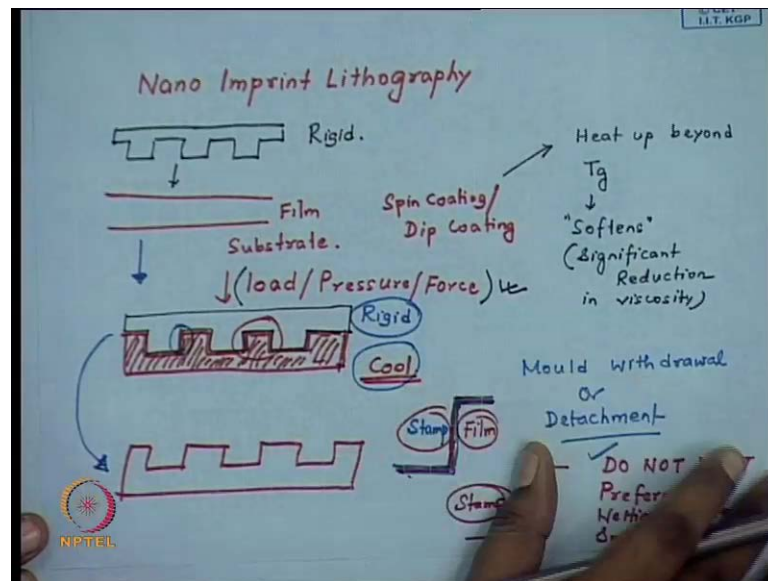 I.I.T. KGP
Nano Imprint Lithography
Rigid.
Film
Substrate.
Spin Coating/
Dip Coating
Heat up beyond
Tg
"Softens"
(Significant
Reduction
in viscosity)
(load/Pressure/Force)
Rigid
Cool
Mould withdrawal
Or
Detachment
Stamp
Film
Stamp
DO NOT
NPTEL